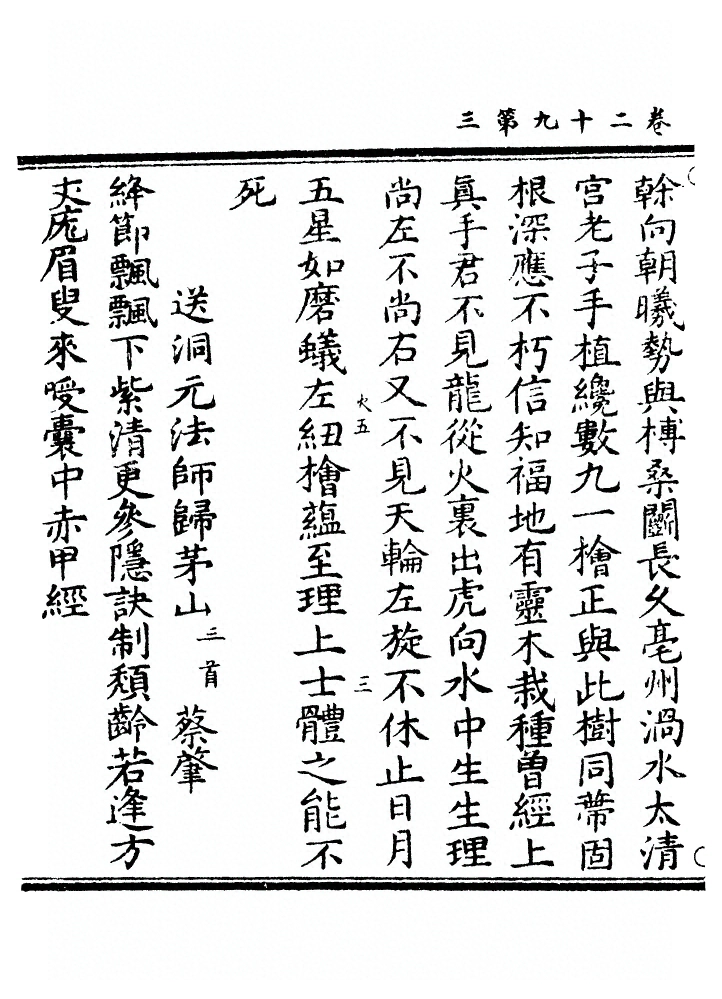 卷二十九第三
榦向朝曦勢與榑桑鬬長久亳州渦水太清
宮老子手植纔數九一檜正與此樹同蔕固
根深應不朽信知福地有靈木栽種曾經上
眞手君不見龍從火裏出虎向水中生生理
尚左不尚右又不見天輪左旋不休止日月
火五 三
五星如磨蟻左紐檜蘊至理上士體之能不
死
送洞元法師歸茅山三首 蔡肇
絳節飄飄下紫清更參隱訣制頹齡若逢方
丈厖眉叟來受囊中赤甲經